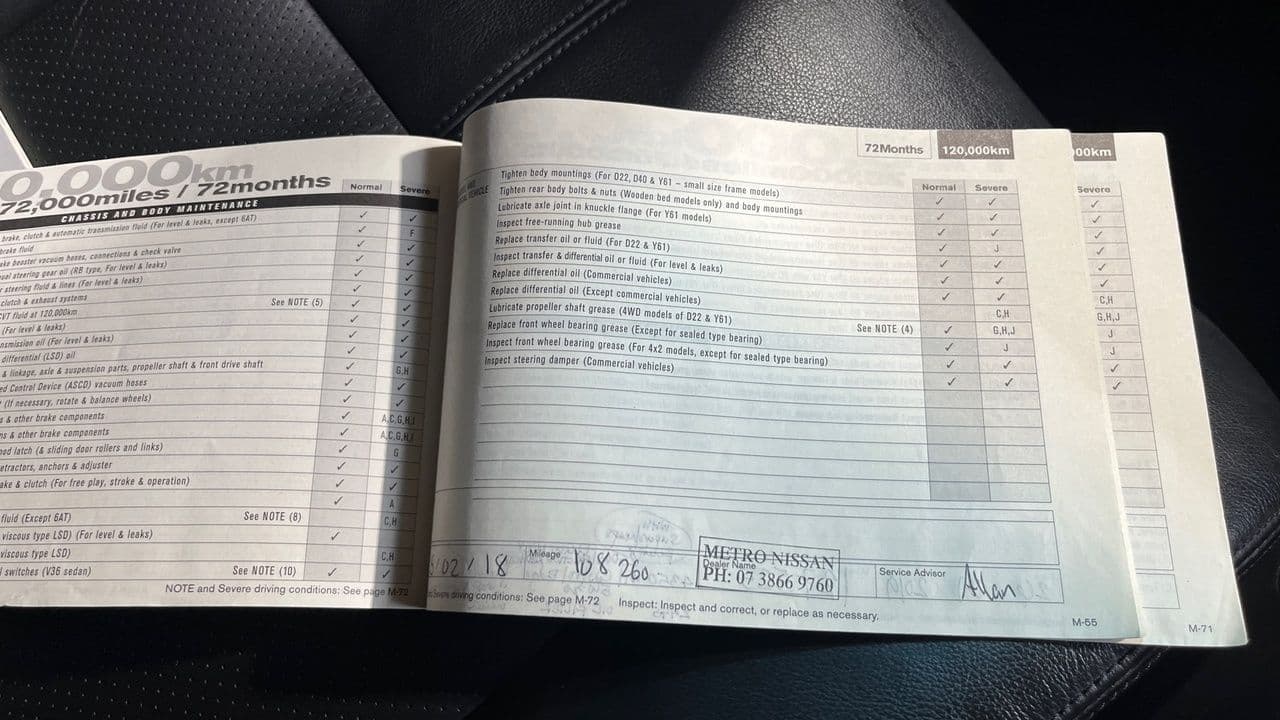 0,000km
72,000miles / 72months
CHASSIS AND BODY MAINTENANCE
Normal Severe
brake, clutch & automatic transmission fluid (For level & leaks, except 6AT) ✓ ✓
brake fluid ✓ F
booster vacuum hoses, connections & check valve ✓ ✓
steering gear oil (RB type, For level & leaks) ✓ ✓
steering fluid & lines (For level & leaks) ✓ ✓
clutch & exhaust systems ✓ ✓
CVT fluid at 120,000km See NOTE (5) ✓ ✓
(For level & leaks) ✓ ✓
oil (For level & leaks) ✓ ✓
differential (LSD) oil ✓ ✓
& linkage, axle & suspension parts, propeller shaft & front drive shaft ✓ G,H
Control Device (ASCD) vacuum hoses ✓ ✓
(If necessary, rotate & balance wheels) ✓ ✓
& other brake components ✓ A,C,G,H,I
& other brake components ✓ A,C,G,H,I
latch (& sliding door rollers and links) ✓ G
retractors, anchors & adjuster ✓ ✓
& clutch (For free play, stroke & operation) ✓ ✓
✓ A
fluid (Except 6AT) See NOTE (8) C,H
viscous type LSD) (For level & leaks) ✓
viscous type LSD) C,H
switches (V36 sedan) See NOTE (10) ✓ ✓
NOTE and Severe driving conditions: See page M-72
72Months 120,000km
Normal Severe
Tighten body mountings (For D22, D40 & Y61 – small size frame models) ✓ ✓
Tighten rear body bolts & nuts (Wooden bed models only) and body mountings ✓ ✓
Lubricate axle joint in knuckle flange (For Y61 models) ✓ ✓
Inspect free-running hub grease ✓ J
Replace transfer oil or fluid (For D22 & Y61) ✓ ✓
Inspect transfer & differential oil or fluid (For level & leaks) ✓ ✓
Replace differential oil (Commercial vehicles) ✓ ✓
Replace differential oil (Except commercial vehicles) C,H
Lubricate propeller shaft grease (4WD models of D22 & Y61) See NOTE (4) ✓ G,H,J
Replace front wheel bearing grease (Except for sealed type bearing) ✓ J
Inspect front wheel bearing grease (For 4x2 models, except for sealed type bearing) ✓ ✓
Inspect steering damper (Commercial vehicles) ✓ ✓
/02/18 Mileage 108 260
METRO NISSAN
Dealer Name
PH: 07 3866 9760
Service Advisor Allan
driving conditions: See page M-72 Inspect: Inspect and correct, or replace as necessary.
M-55
00km
Severe
✓
✓
✓
✓
✓
✓
C,H
G,H,J
J
J
✓
✓
M-71